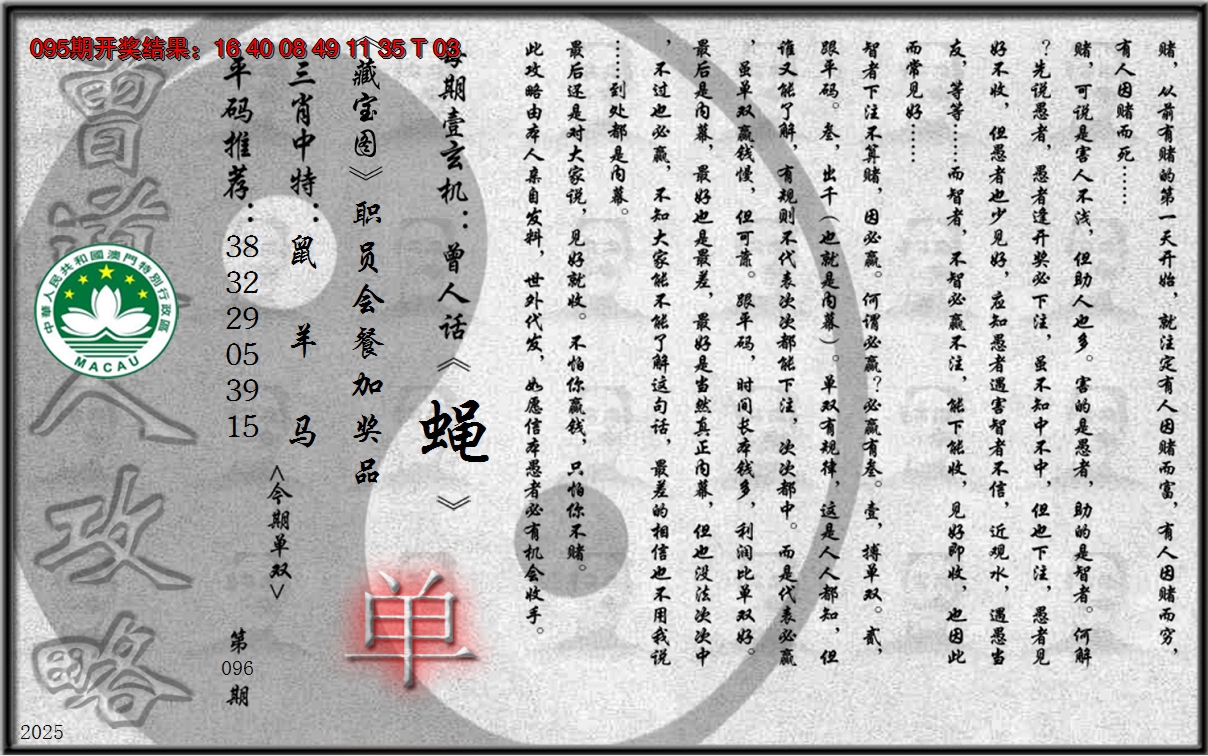 095期开奖结果：16 40 08 49 11 35 T 03
赌，从前有赌的第一天开始，就注定有人因赌而富，有人因赌而穷，
有人因赌而死……
赌，可说是害人不浅，但助人也多。害的是愚者，助的是智者。何解
？先说愚者，愚者逢开奖必下注，虽不知中不中，但也下注，愚者见
好不收，但愚者也少见好，应知愚者遇害智者不信，近观水，遇愚当
友，等等……而智者，不智必赢不注，能下能收，见好即收，也因此
而常见好……
智者下注不算赌，因必赢。何谓必赢？必赢有叁。壹，搏单双。贰，
跟平码。叁，出千（也就是内幕）。单双有规律，这是人人都知，但
谁又能了解，有规则不代表次次都能下注，次次都中。而是代表必赢
，虽单双赢钱慢，但可靠。跟平码，时间长本钱多，利润比单双好。
最后是内幕，最好也是最差，最好是当然真正内幕，但也没法次次中
，不过也必赢，不知大家能不能了解这句话，最差的相信也不用我说
……到处都是内幕。
最后还是对大家说，见好就收。不怕你赢钱，只怕你不赌。
此攻略由本人亲自发料，世外代发，如愿信本愚者必有机会收手。
每期壹玄机：曾人话《蝇》
《藏宝图》职员会餐加奖品
单
三肖中特：鼠 羊 马
<今期单双>
平码推荐：
38
32
29
05
39
15
第
096
期
曾道人攻略
中華人民共和國澳門特別行政區
MACAU
2025